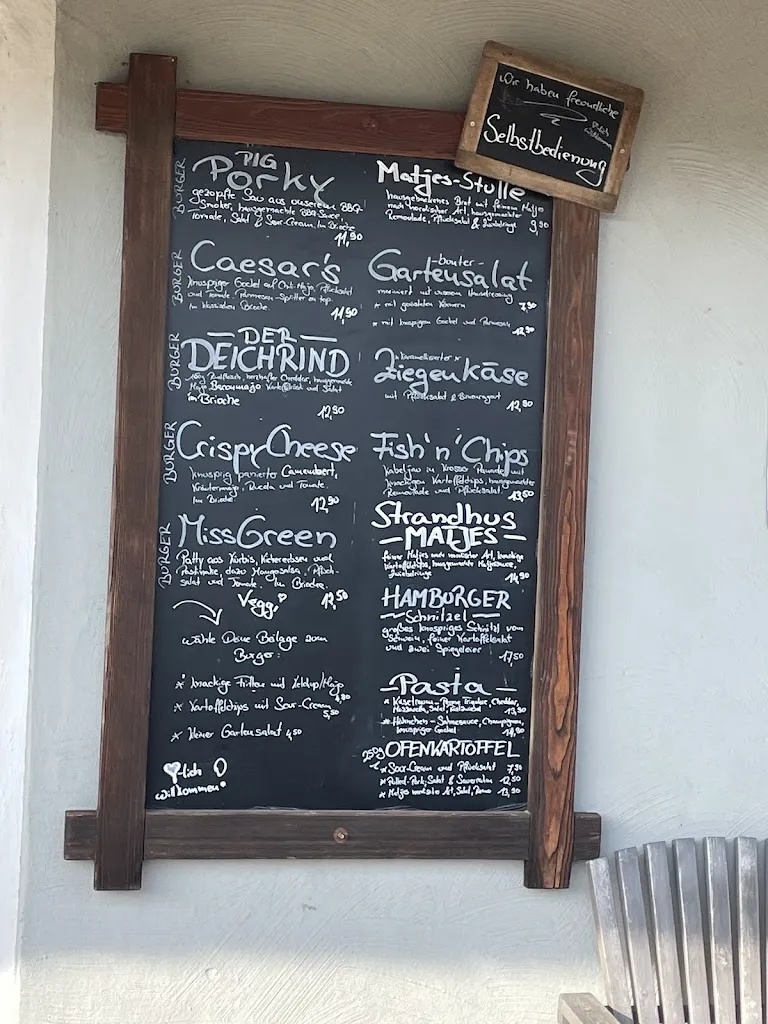 Wir haben freundliche
Selbstbedienung
BURGER
PIG
Porky
gezopfte Sau aus unserem BBQ-
Smoker, hausgemachte BBQ-Sauce,
Tomate, Salat & Sour-Cream. Im Brioche
11,90
BURGER
Caesar's
knuspriger Gockel auf Mayo, Pflücksalat
und Tomate. Parmesan-Splitter on top.
Im klassischen Brioche.
11,90
BURGER
DER
DEICHRIND
Rindfleisch, herzhafter Cheddar, hausgemachte
Baconmajo und Salat
im Brioche
12,90
BURGER
CrispyCheese
knusprig panierter Camembert,
Kräutermajo, Rucola und Tomate.
Im Brioche.
12,90
BURGER
MissGreen
Patty aus Kürbis, Kichererbsen und
Pastinake, dazu Mangosalsa, Pflück-
salat und Tomate. Im Brioche.
Veggi
12,50
Wähle Deine Beilage zum
Burger:
* knackige Fritten mit Ketchup/Majo
4,90
* Kartoffelchips mit Sour-Cream
5,50
* kleiner Gartensalat 4,50
lich
willkommen!
Matjes-Stulle
hausgebackenes Brot mit feinem Matjes
nach nordischer Art, hausgemachter
Remoulade, Pflücksalat & Zwiebelringe
9,90
-bunter-
Gartensalat
mariniert mit unserem Hausdressing
* mit gerösteten Körnern
7,90
* mit knusprigem Gockel und Parmesan
12,90
* karamellisierter *
Ziegenkäse
mit Pflücksalat &
12,90
Fish'n'Chips
Kabeljau in krosser Panade mit
knackigen Kartoffelchips, hausgemachter
Remoulade und Pflücksalat.
13,50
Strandhus
-MATJES-
feiner Matjes nach nordischer Art, knackige
Kartoffelchips, hausgemachte
Zwiebelringe
14,90
HAMBURGER
- Schnitzel -
großes knuspriges Schnitzel vom
Schwein, feiner Kartoffelsalat
und zwei Spiegeleier
17,50
- Pasta -
* Käsetraum - Cheddar,
Mozzarella, Salat,
13,90
* Hähnchen - Sahnesauce, Champignon,
knuspriger Gockel
14,90
250g OFENKARTOFFEL
* Sour-Cream und Pflücksalat 7,90
* Pulled-Pork, Salat & Sauerrahm 12,50
* Matjes nordische Art, Salat, 13,90